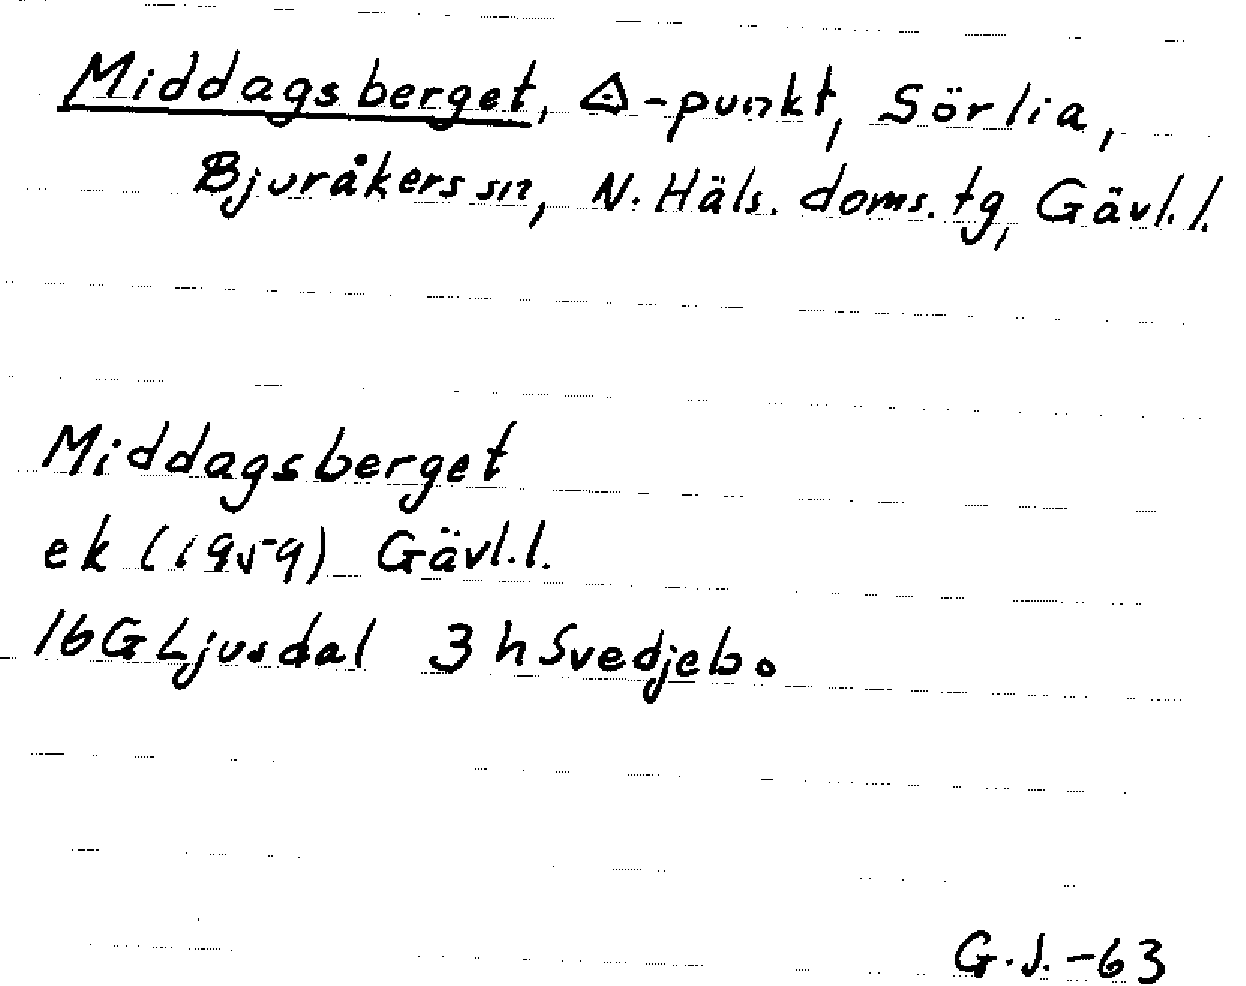 Middagsberget, △-punkt, Sörlia,
Bjuråkers sn, N. Häls. doms. tg, Gävl. l.
Middagsberget
ek (1959) Gävl. l.
16G Ljusdal 3h Svedjebo
G. J. -63